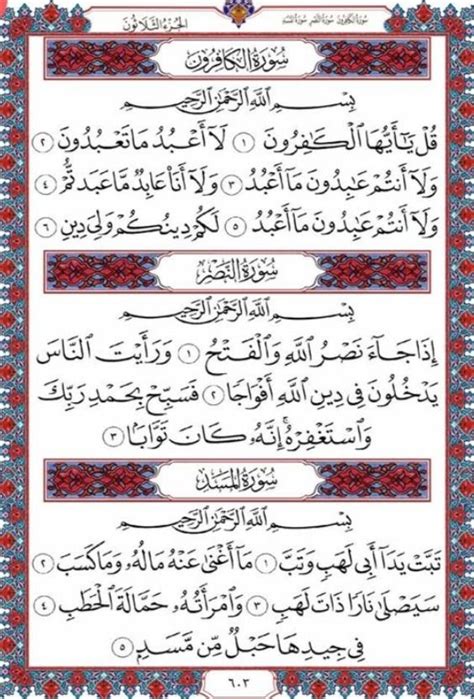 سُورَةُ الكَافِرُونَ سُورَةُ النَّصْرِ سُورَةُ المَسَدِ
الجُزْءُ الثَّلَاثُونَ
سُورَةُ الكَافِرُونَ
بِسْمِ ٱللَّهِ ٱلرَّحْمَٰنِ ٱلرَّحِيمِ
قُلْ يَٰٓأَيُّهَا ٱلْكَٰفِرُونَ ١ لَآ أَعْبُدُ مَا تَعْبُدُونَ ٢
وَلَآ أَنتُمْ عَٰبِدُونَ مَآ أَعْبُدُ ٣ وَلَآ أَنَا۠ عَابِدٌ مَّا عَبَدتُّمْ ٤
وَلَآ أَنتُمْ عَٰبِدُونَ مَآ أَعْبُدُ ٥ لَكُمْ دِينُكُمْ وَلِيَ دِينِ ٦
سُورَةُ النَّصْرِ
بِسْمِ ٱللَّهِ ٱلرَّحْمَٰنِ ٱلرَّحِيمِ
إِذَا جَآءَ نَصْرُ ٱللَّهِ وَٱلْفَتْحُ ١ وَرَأَيْتَ ٱلنَّاسَ
يَدْخُلُونَ فِي دِينِ ٱللَّهِ أَفْوَاجًا ٢ فَسَبِّحْ بِحَمْدِ رَبِّكَ
وَٱسْتَغْفِرْهُ ۚ إِنَّهُۥ كَانَ تَوَّابًۢا ٣
سُورَةُ المَسَدِ
بِسْمِ ٱللَّهِ ٱلرَّحْمَٰنِ ٱلرَّحِيمِ
تَبَّتْ يَدَآ أَبِي لَهَبٍ وَتَبَّ ١ مَآ أَغْنَىٰ عَنْهُ مَالُهُۥ وَمَا كَسَبَ ٢
سَيَصْلَىٰ نَارًا ذَاتَ لَهَبٍ ٣ وَٱمْرَأَتُهُۥ حَمَّالَةَ ٱلْحَطَبِ ٤
فِي جِيدِهَا حَبْلٌ مِّن مَّسَدٍۭ ٥
٦٠٣